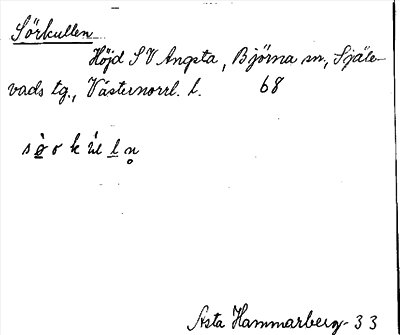 Sörkullen
Höjd SV Angsta, Björna sn, Själe-
vads tg., Västernorrl. l. 68
Asta Hammarberg -33